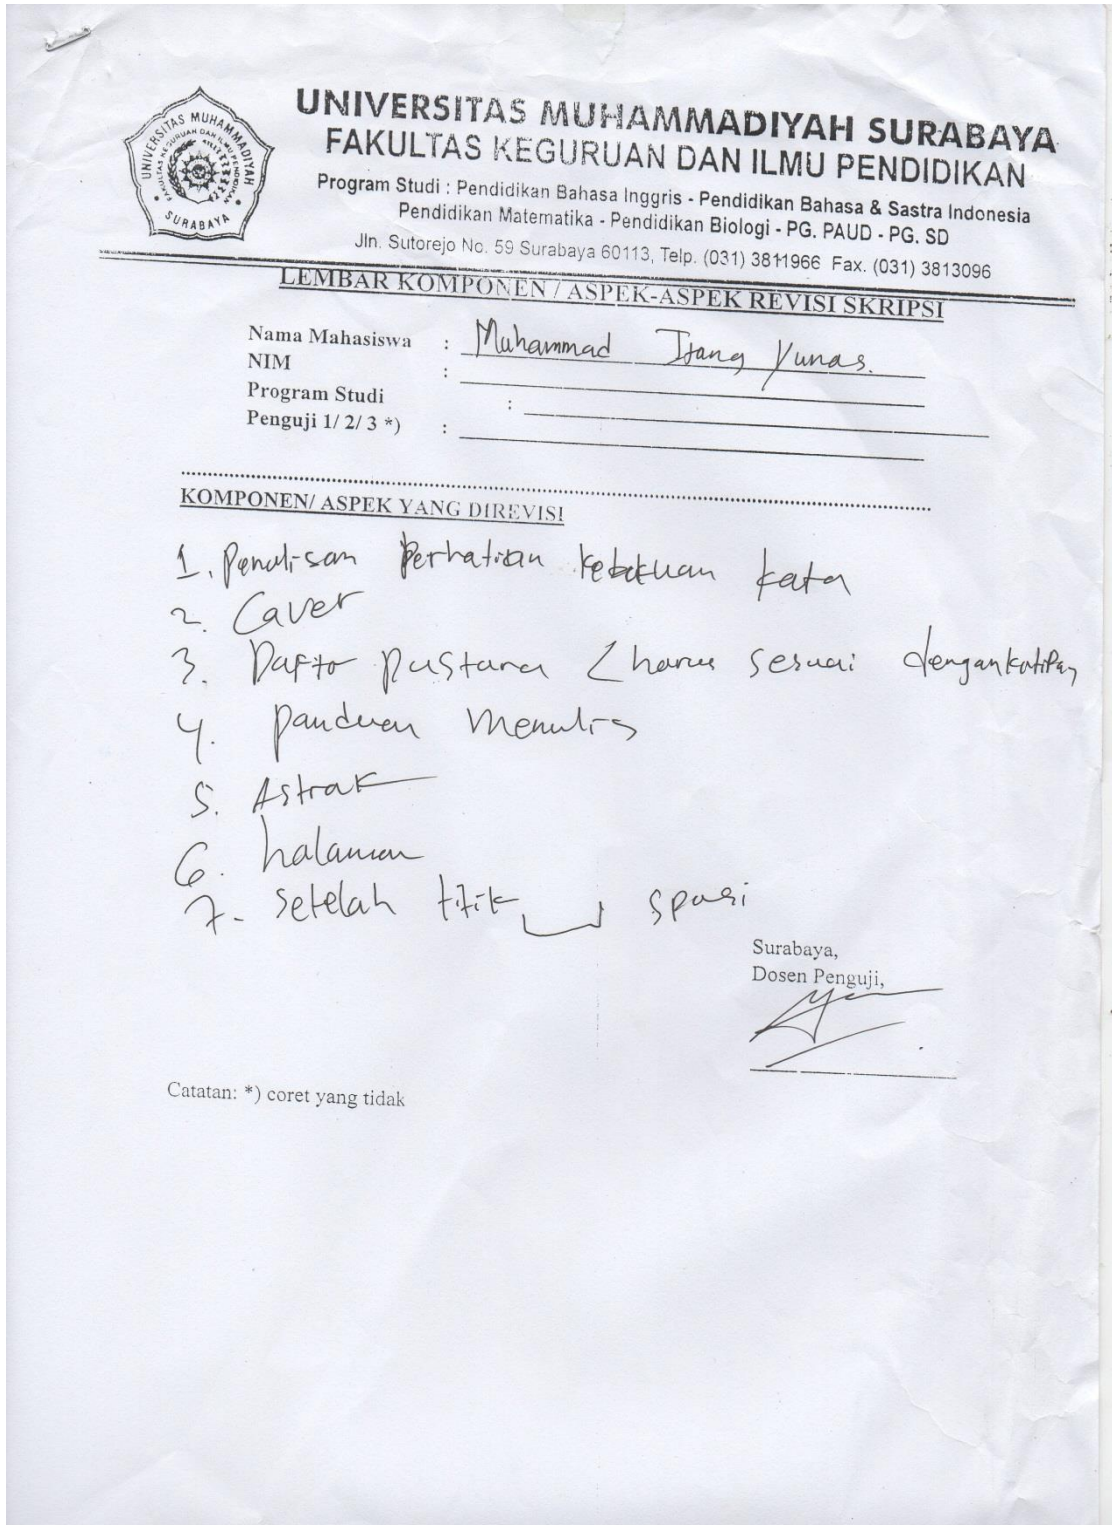 UNIVERSITAS MUHAMMADIYAH
FAKULTAS KEGURUAN DAN ILMU PENDIDIKAN
SURABAYA
UNIVERSITAS MUHAMMADIYAH SURABAYA
FAKULTAS KEGURUAN DAN ILMU PENDIDIKAN
Program Studi : Pendidikan Bahasa Inggris - Pendidikan Bahasa & Sastra Indonesia
Pendidikan Matematika - Pendidikan Biologi - PG. PAUD - PG. SD
Jln. Sutorejo No. 59 Surabaya 60113, Telp. (031) 3811966 Fax. (031) 3813096
LEMBAR KOMPONEN / ASPEK-ASPEK REVISI SKRIPSI
Nama Mahasiswa : Muhammad Itang Yunas.
NIM :
Program Studi :
Penguji 1/ 2/ 3 *) :
KOMPONEN/ ASPEK YANG DIREVISI
1. Penulisan Perhatikan kebakuan kata
2. Caver
3. Dafta Pustaka harus sesuai dengan kutipan
4. panduan menulis
5. Astrak
6. halaman
7. setelah titik spasi
Surabaya,
Dosen Penguji,
Catatan: *) coret yang tidak